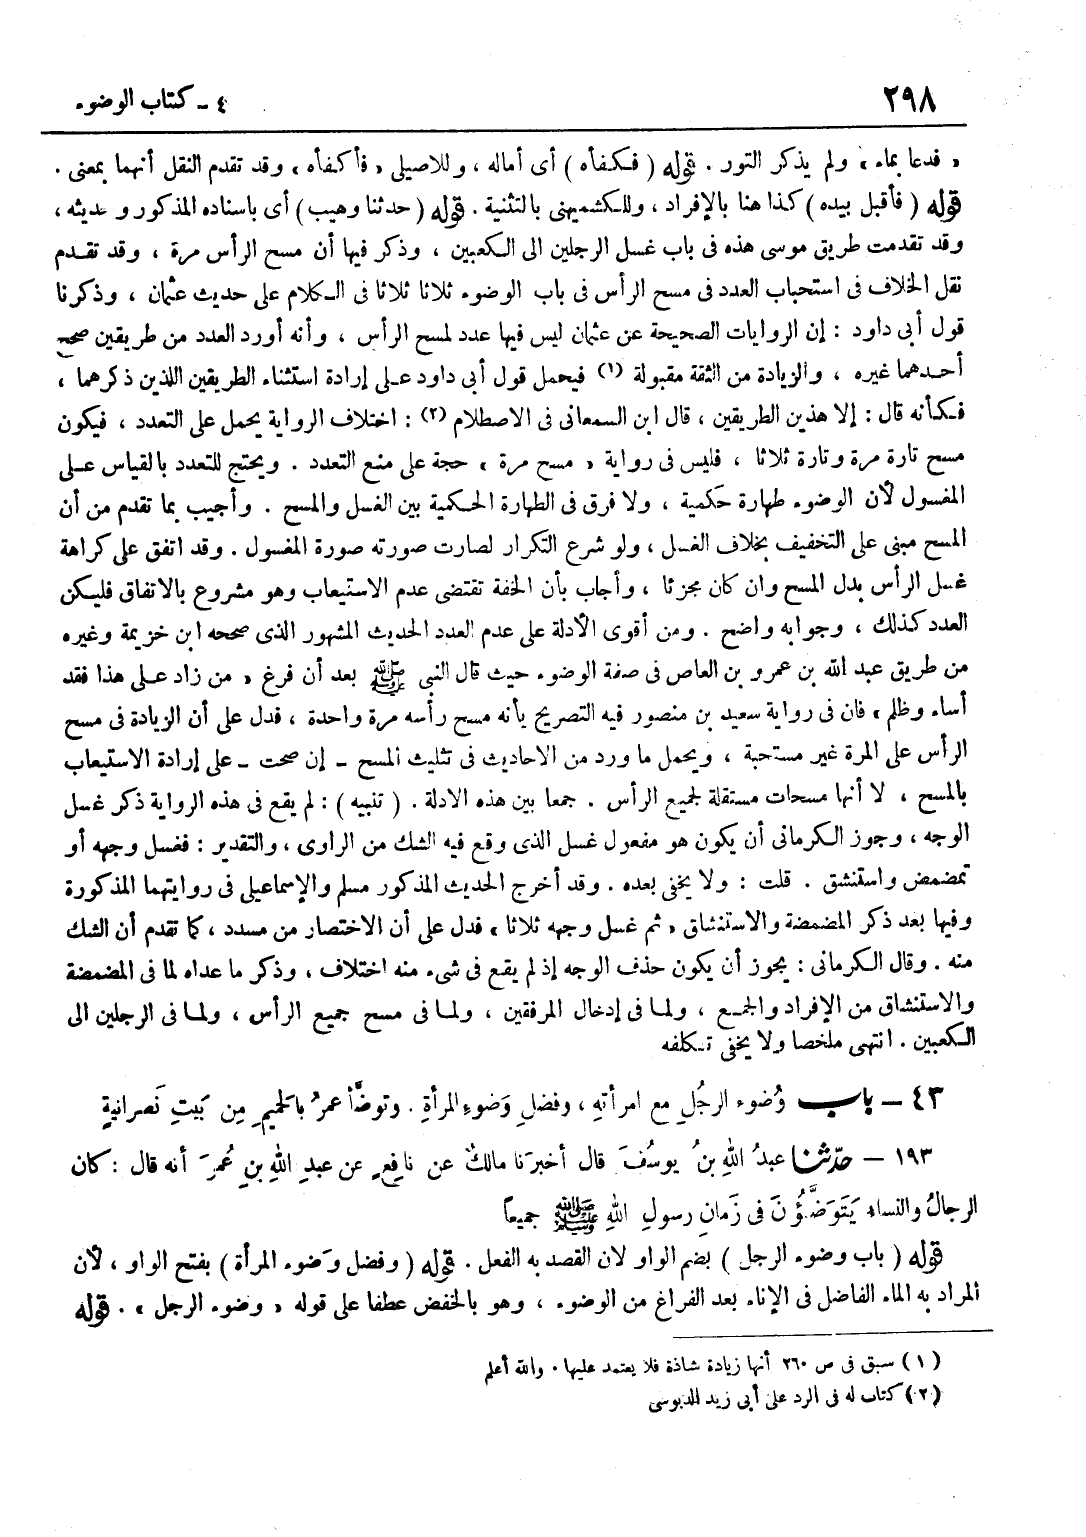 ٢٩٨
٤ ـ كتاب الوضوء
« فدعا بماء » ولم يذكر التور . قوله ( فكفأه ) أى أماله ، وللاصيلى « فأكفأه » وقد تقدم النقل أنهما بمعنى .
قوله ( فأقبل بيده ) كذا هنا بالإفراد ، وللكشميهنى بالتثنية . قوله ( حدثنا وهيب ) أى باسناده المذكور وحديثه ،
وقد تقدمت طريق موسى هذه فى باب غسل الرجلين الى الكعبين ، وذكر فيها أن مسح الرأس مرة ، وقد تقدم
نقل الخلاف فى استحباب العدد فى مسح الرأس فى باب الوضوء ثلاثا ثلاثا فى الكلام على حديث عثمان ، وذكرنا
قول أبى داود : إن الروايات الصحيحة عن عثمان ليس فيها عدد لمسح الرأس ، وأنه أورد العدد من طريقين صحح
أحدهما غيره ، والزيادة من الثقة مقبولة (١) فيحمل قول أبى داود على إرادة استثناء الطريقين اللذين ذكرهما ،
فكأنه قال : إلا هذين الطريقين ، قال ابن السمعانى فى الاصطلام (٢) : اختلاف الرواية يحمل على التعدد ، فيكون
مسح تارة مرة وتارة ثلاثا ، فليس فى رواية « مسح مرة » حجة على منع التعدد . ويحتج للتعدد بالقياس على
المغسول لأن الوضوء طهارة حكمية ، ولا فرق فى الطهارة الحكمية بين الغسل والمسح . وأجيب بما تقدم من أن
المسح مبنى على التخفيف بخلاف الغسل ، ولو شرع التكرار لصارت صورته صورة المغسول . وقد اتفق على كراهة
غسل الرأس بدل المسح وان كان مجزئا ، وأجاب بأن الخفة تقتضى عدم الاستيعاب وهو مشروع بالاتفاق فليكن
العدد كذلك ، وجوابه واضح . ومن أقوى الأدلة على عدم العدد الحديث المشهور الذى صححه ابن خزيمة وغيره
من طريق عبد الله بن عمرو بن العاص فى صفة الوضوء حيث قال النبى ﷺ بعد أن فرغ « من زاد على هذا فقد
أساء وظلم » فان فى رواية سعيد بن منصور فيه التصريح بأنه مسح رأسه مرة واحدة ، فدل على أن الزيادة فى مسح
الرأس على المرة غير مستحبة ، ويحمل ما ورد من الاحاديث فى تثليث المسح ـ إن صحت ـ على إرادة الاستيعاب
بالمسح ، لا أنها مسحات مستقلة لجميع الرأس . جمعا بين هذه الادلة . ( تنبيه ) : لم يقع فى هذه الرواية ذكر غسل
الوجه ، وجوز الكرمانى أن يكون هو مفعول غسل الذى وقع فيه الشك من الراوى ، والتقدير : فغسل وجهه أو
تمضمض واستنشق . قلت : ولا يخفى بعده . وقد أخرج الحديث المذكور مسلم والإسماعيلى فى روايتهما المذكورة
وفيها بعد ذكر المضمضة والاستنشاق « ثم غسل وجهه ثلاثا » فدل على أن الاختصار من مسدد ، كما تقدم أن الشك
منه . وقال الكرمانى : يجوز أن يكون حذف الوجه إذ لم يقع فى شىء منه اختلاف ، وذكر ما عداه لما فى المضمضة
والاستنشاق من الإفراد والجمع ، ولما فى إدخال المرفقين ، ولما فى مسح جميع الرأس ، ولما فى الرجلين الى
الكعبين . انتهى ملخصا ولا يخفى تكلفه
٤٣ ـ باب وُضوء الرجُلِ مع امرأتهِ ، وفضلِ وَضوءِ المرأةِ . وتوضَّأ عمرُ بالحَميمِ مِن بَيتِ نَصرانيةٍ
١٩٣ ـ حدّثنا عبدُ اللهِ بنُ يوسُفَ قال أخبرَنا مالكٌ عن نافعٍ عن عبدِ اللهِ بنِ عُمرَ أنه قال : كان
الرجالُ والنساءُ يَتَوَضَّؤُونَ فى زَمانِ رسولِ اللهِ ﷺ جميعاً
قوله ( باب وضوء الرجل ) بضم الواو لان القصد به الفعل . قوله ( وفضل وَضوء المرأة ) بفتح الواو ، لأن
المراد به الماء الفاضل فى الإناء بعد الفراغ من الوضوء ، وهو بالخفض عطفا على قوله « وضوء الرجل » . قوله
(١) سبق فى ص ٢٦٠ أنها زيادة شاذة فلا يعتمد عليها . والله أعلم
(٢) كتاب له فى الرد على أبى زيد الدبوسى